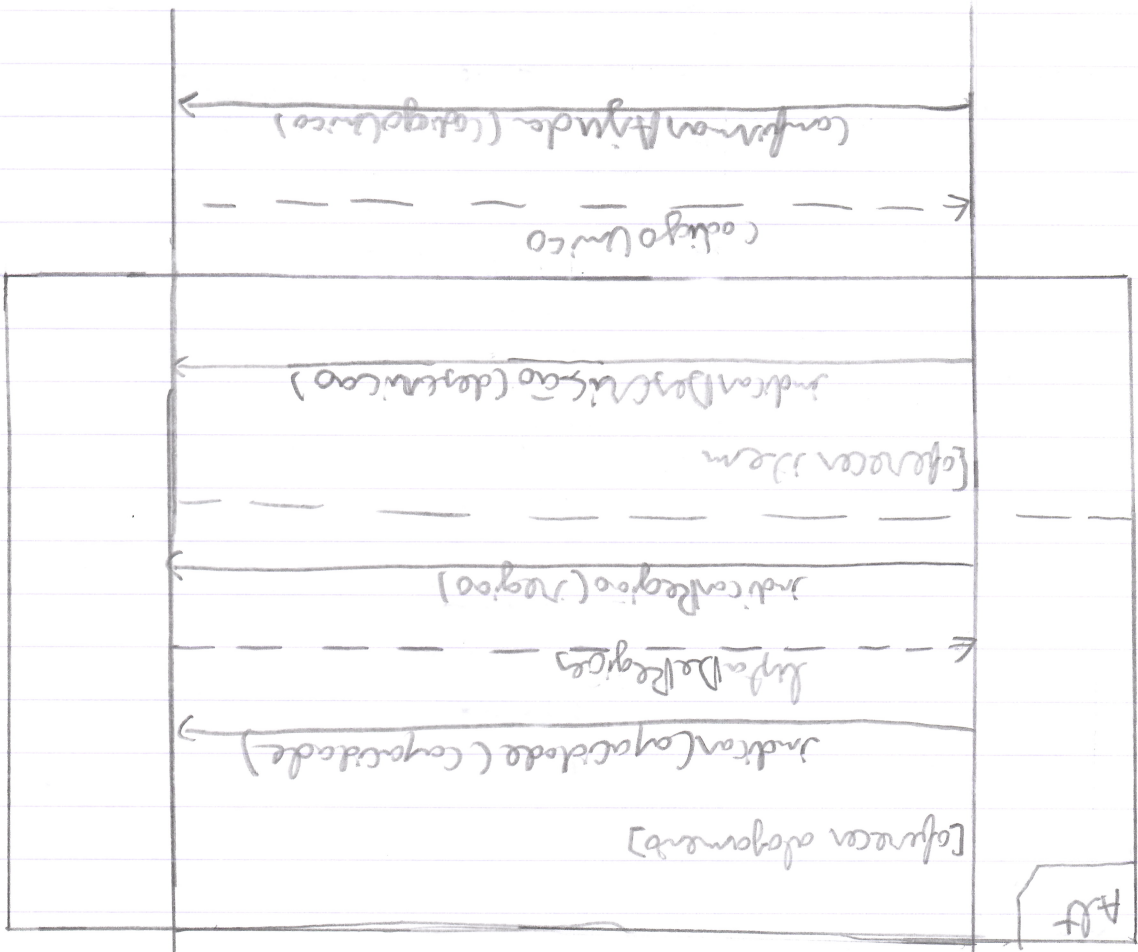 Alt
[oferecer alojamento]
indicarCapacidade (capacidade)
listaDeRegioes
indicarRegiao (regiao)
[oferecer item
indicarDescrição (descricao)
codigoUnico
ConfirmarAjuda (codigoUnico)